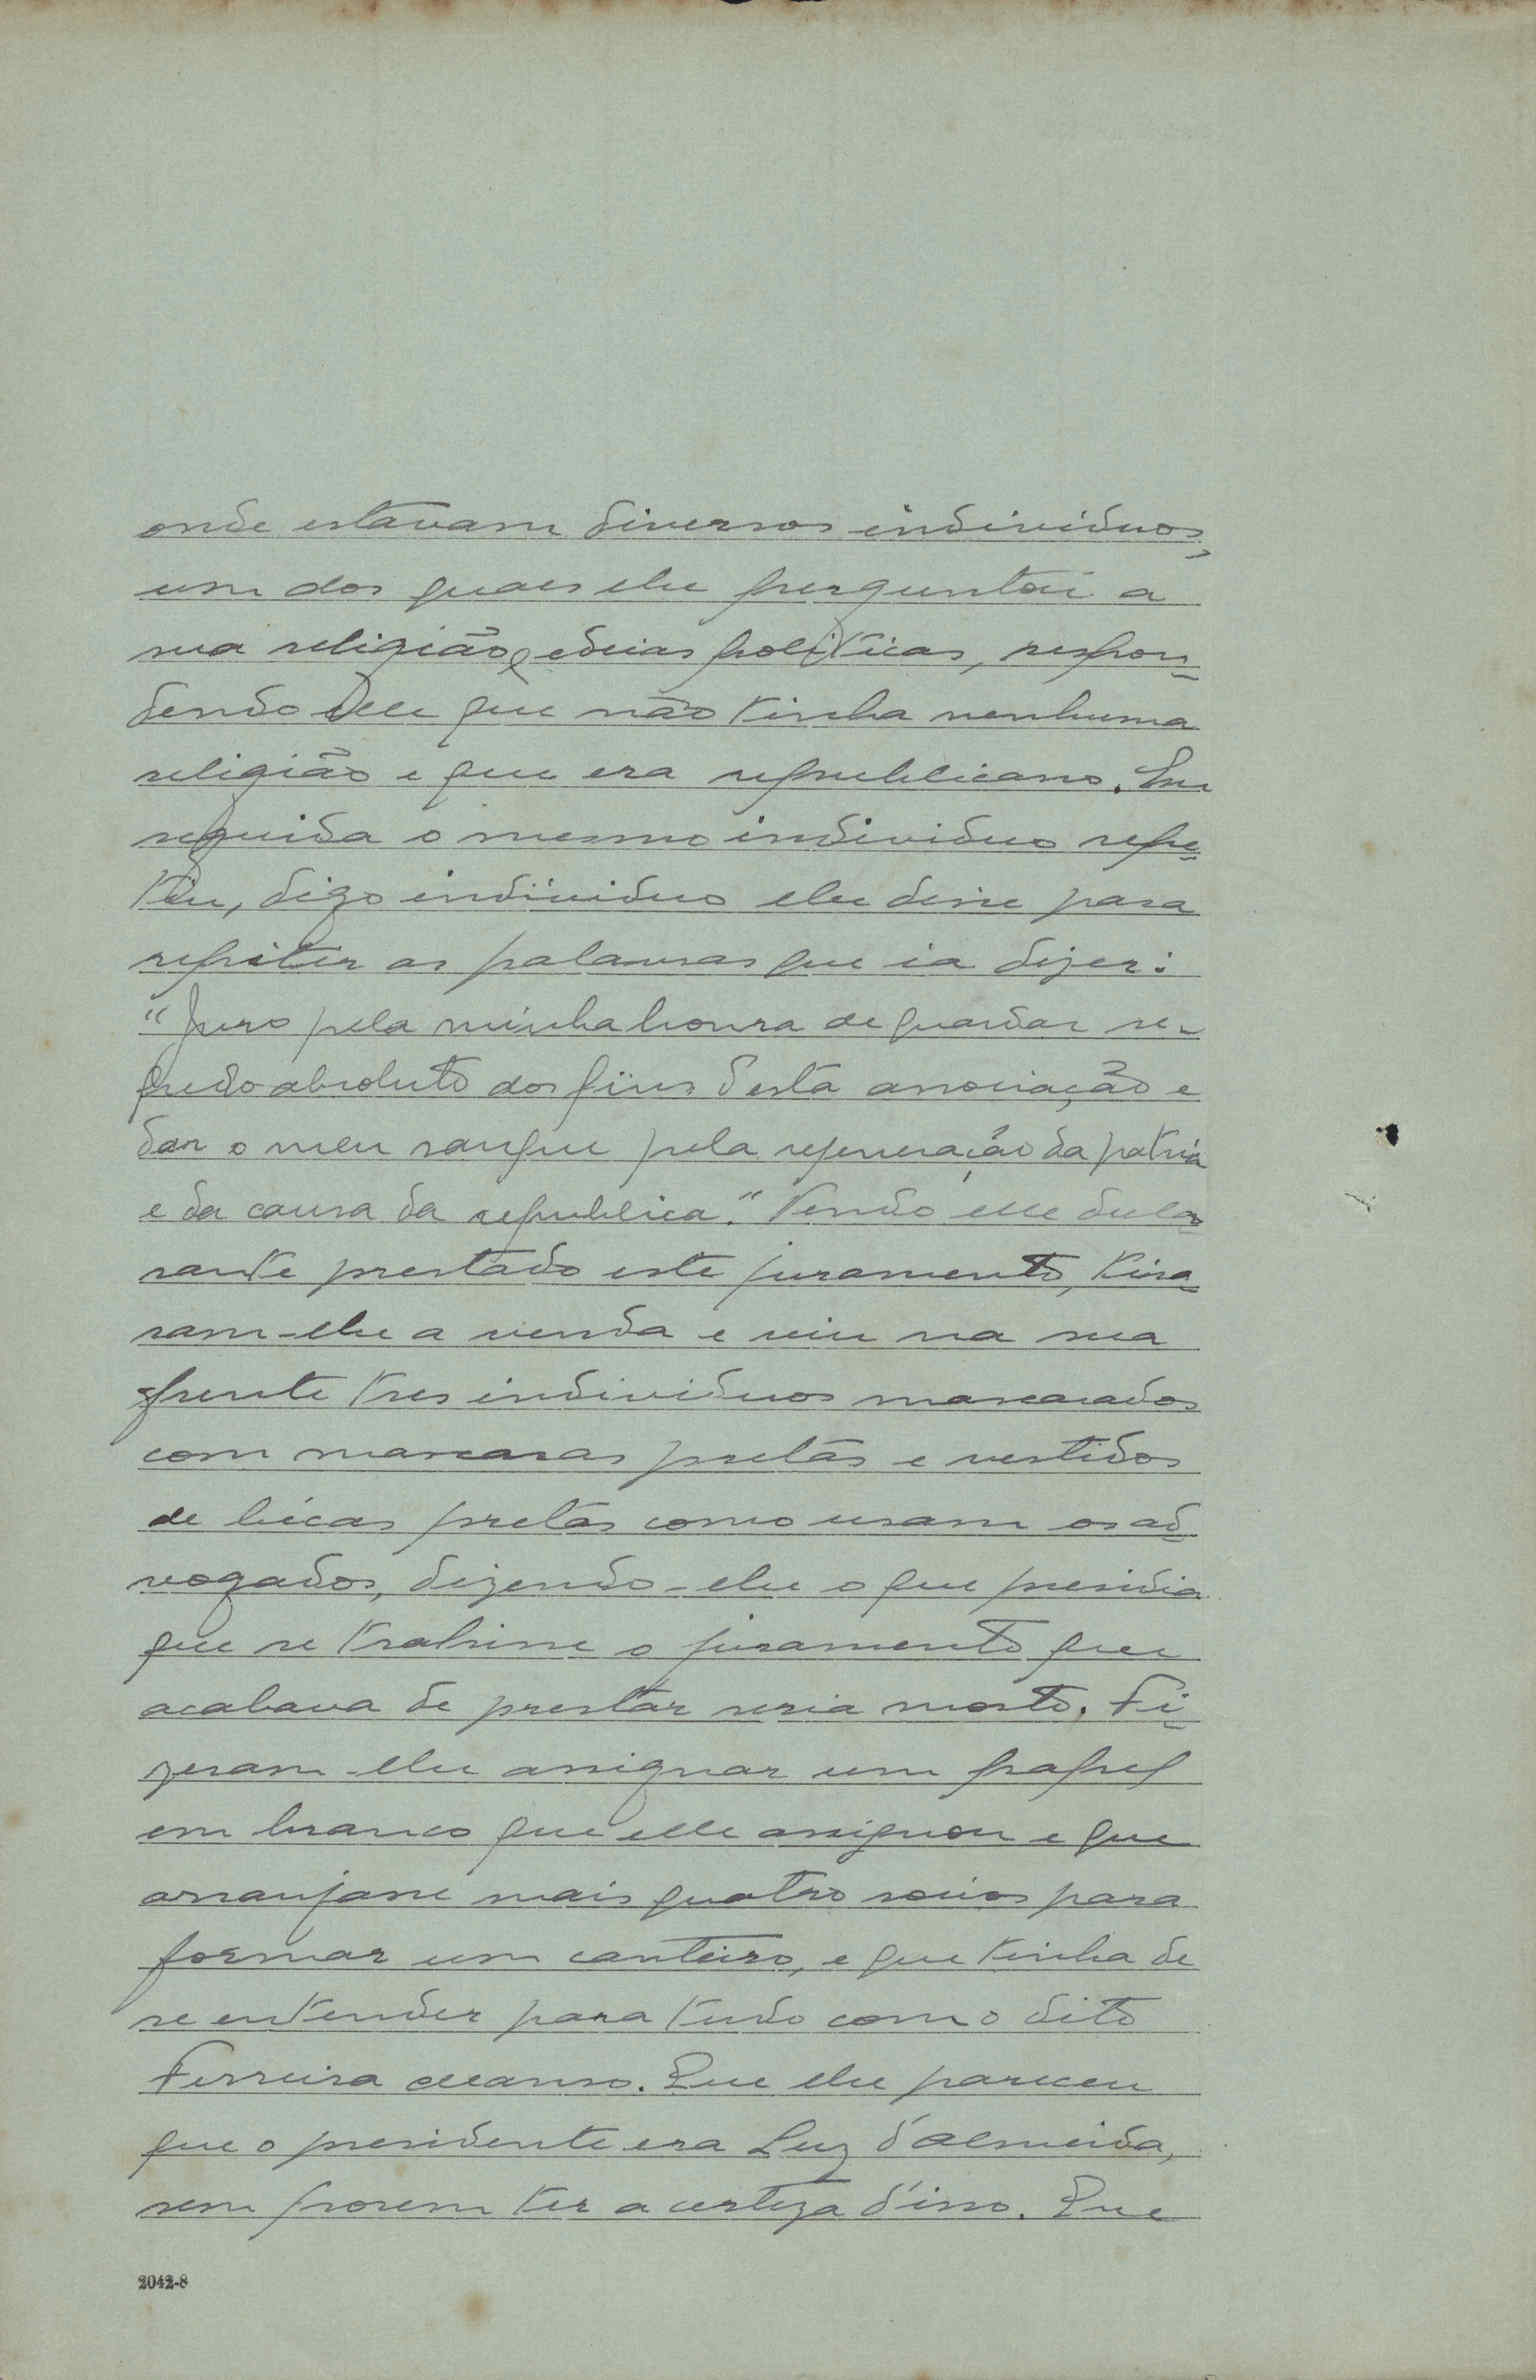 onde estavam diversos individuos,
um dos quaes lhe perguntou a
sua religião e edeias politicas, respon-
dendo elle que não tinha nenhuma
religião e que era republicano. Em
seguida o mesmo individuo repe-
tiu, digo individuo lhe disse para
repitir as palavras que ia dizer:
"Juro pela minha honra de guardar se-
gredo absoluto dos fins desta associação e
dar o meu sangue pela regeneração da patria
e da causa da republica." Tendo elle decla-
rante prestado este juramento, tira-
ram-lhe a venda e viu na sua
frente tres individuos mascarados
com mascaras pretas e vestidos
de bécas pretas como usam os ad-
vogados, dizendo-lhe o que presidia
que se trahisse o juramento que
acabava de prestar seria morto. Fi-
zeram-lhe assignar um papel
em branco que elle assignou e que
arranjasse mais quatro socios para
formar um canteiro, e que tinha de
se entender para tudo com o dito
Ferreira Manso. Que lhe pareceu
que o presidente era Luz d'Almeida,
sem porem ter a certeza d'isso. Que
2042-8